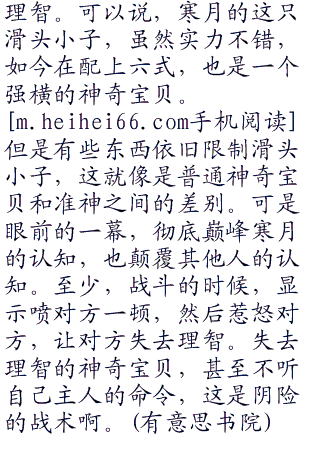 理智。可以说，寒月的这只
滑头小子，虽然实力不错，
如今在配上六式，也是一个
强横的神奇宝贝。
[m.heihei66.com手机阅读]
但是有些东西依旧限制滑头
小子，这就像是普通神奇宝
贝和准神之间的差别。可是
眼前的一幕，彻底巅峰寒月
的认知，也颠覆其他人的认
知。至少，战斗的时候，显
示喷对方一顿，然后惹怒对
方，让对方失去理智。失去
理智的神奇宝贝，甚至不听
自己主人的命令，这是阴险
的战术啊。(有意思书院)